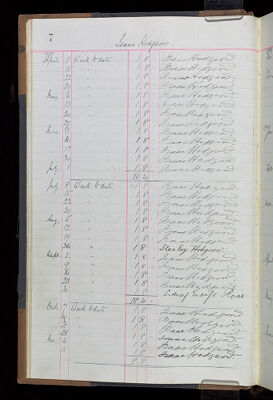 7
Isaac Hodgson
April 8 Week to date 1 8 Isaac Hodgson
15 " 1 8 Isaac Hodgson
22 " 1 8 Isaac Hodgson
29 " 1 8 Isaac Hodgson
May 6 " 1 8 Isaac Hodgson
13 " 1 8 Isaac Hodgson
20 " 1 8 Isaac Hodgson
27 " 1 8 Isaac Hodgson
June 3 " 1 8 Isaac Hodgson
10 " 1 8 Isaac Hodgson
17 " 1 8 Isaac Hodgson
24 " 1 8 Isaac Hodgson
July 1 " 1 8 Isaac Hodgson
18 4
July 8 Week to date 1 8 Isaac Hodgson
15 " 1 8 Isaac Hodgson
22 " 1 8 Isaac Hodgson
29 " 1 8 Isaac Hodgson
Aug. 5 " 1 8 Isaac Hodgson
12 " 1 8 Isaac Hodgson
19 " 1 8 Isaac Hodgson
26 " 1 8 Stanley Hodgson
Sept. 2 " 1 8 Isaac Hodgson
9 " 1 8 Isaac Hodgson
16 " 1 8 Isaac Hodgson
" 1 8 Isaac Hodgson
Sidney
18 4
Oct. 7 Week to date 1 8 Isaac Hodgson
14 " 1 8 Isaac Hodgson
21 " 1 8 Isaac Hodgson
28 " 1 8 Isaac Hodgson
Nov. 4 " 1 8 Isaac Hodgson
11 " 1 8 Isaac Hodgson